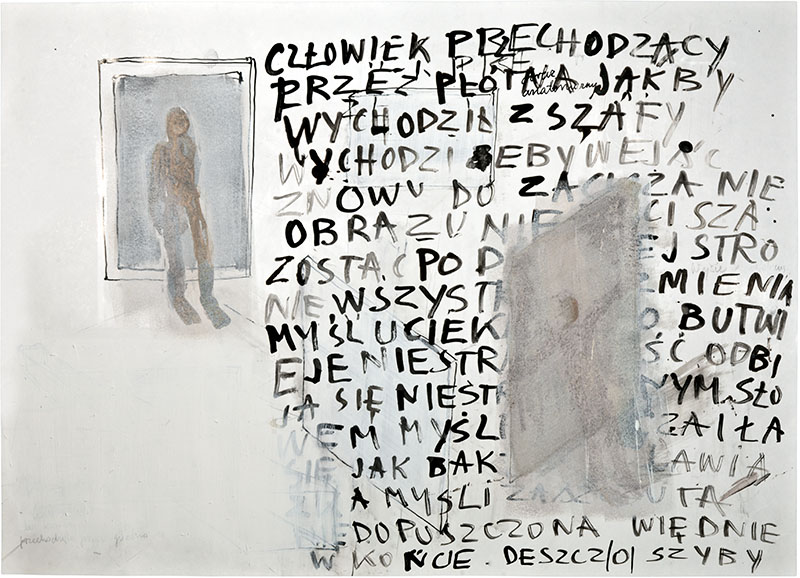 CZŁOWIEK PRZECHODZĄCY
PRZEZ PŁÓTNA JAKBY
WYCHODZIŁ Z SZAFY
WYCHODZI ŻEBY WEJŚĆ
ZNOWU DO ZACISZA NIE
OBRAZU NIE CISZA
ZOSTAĆ PO D EJ STRO
NIE WSZYST ZMIENIA
MYŚL UCIEK O BUTWI
EJE NIESTR ŚĆ ODBI
JA SIĘ NIEST NYM SŁO
WEM MYŚL ZAIŁA
SIĘ JAK BAK ŁAWIA
A MYŚL UTA
NIEDOPUSZCZONA WIĘDNIE
W KOŃCU DESZCZ/O/ SZYBY